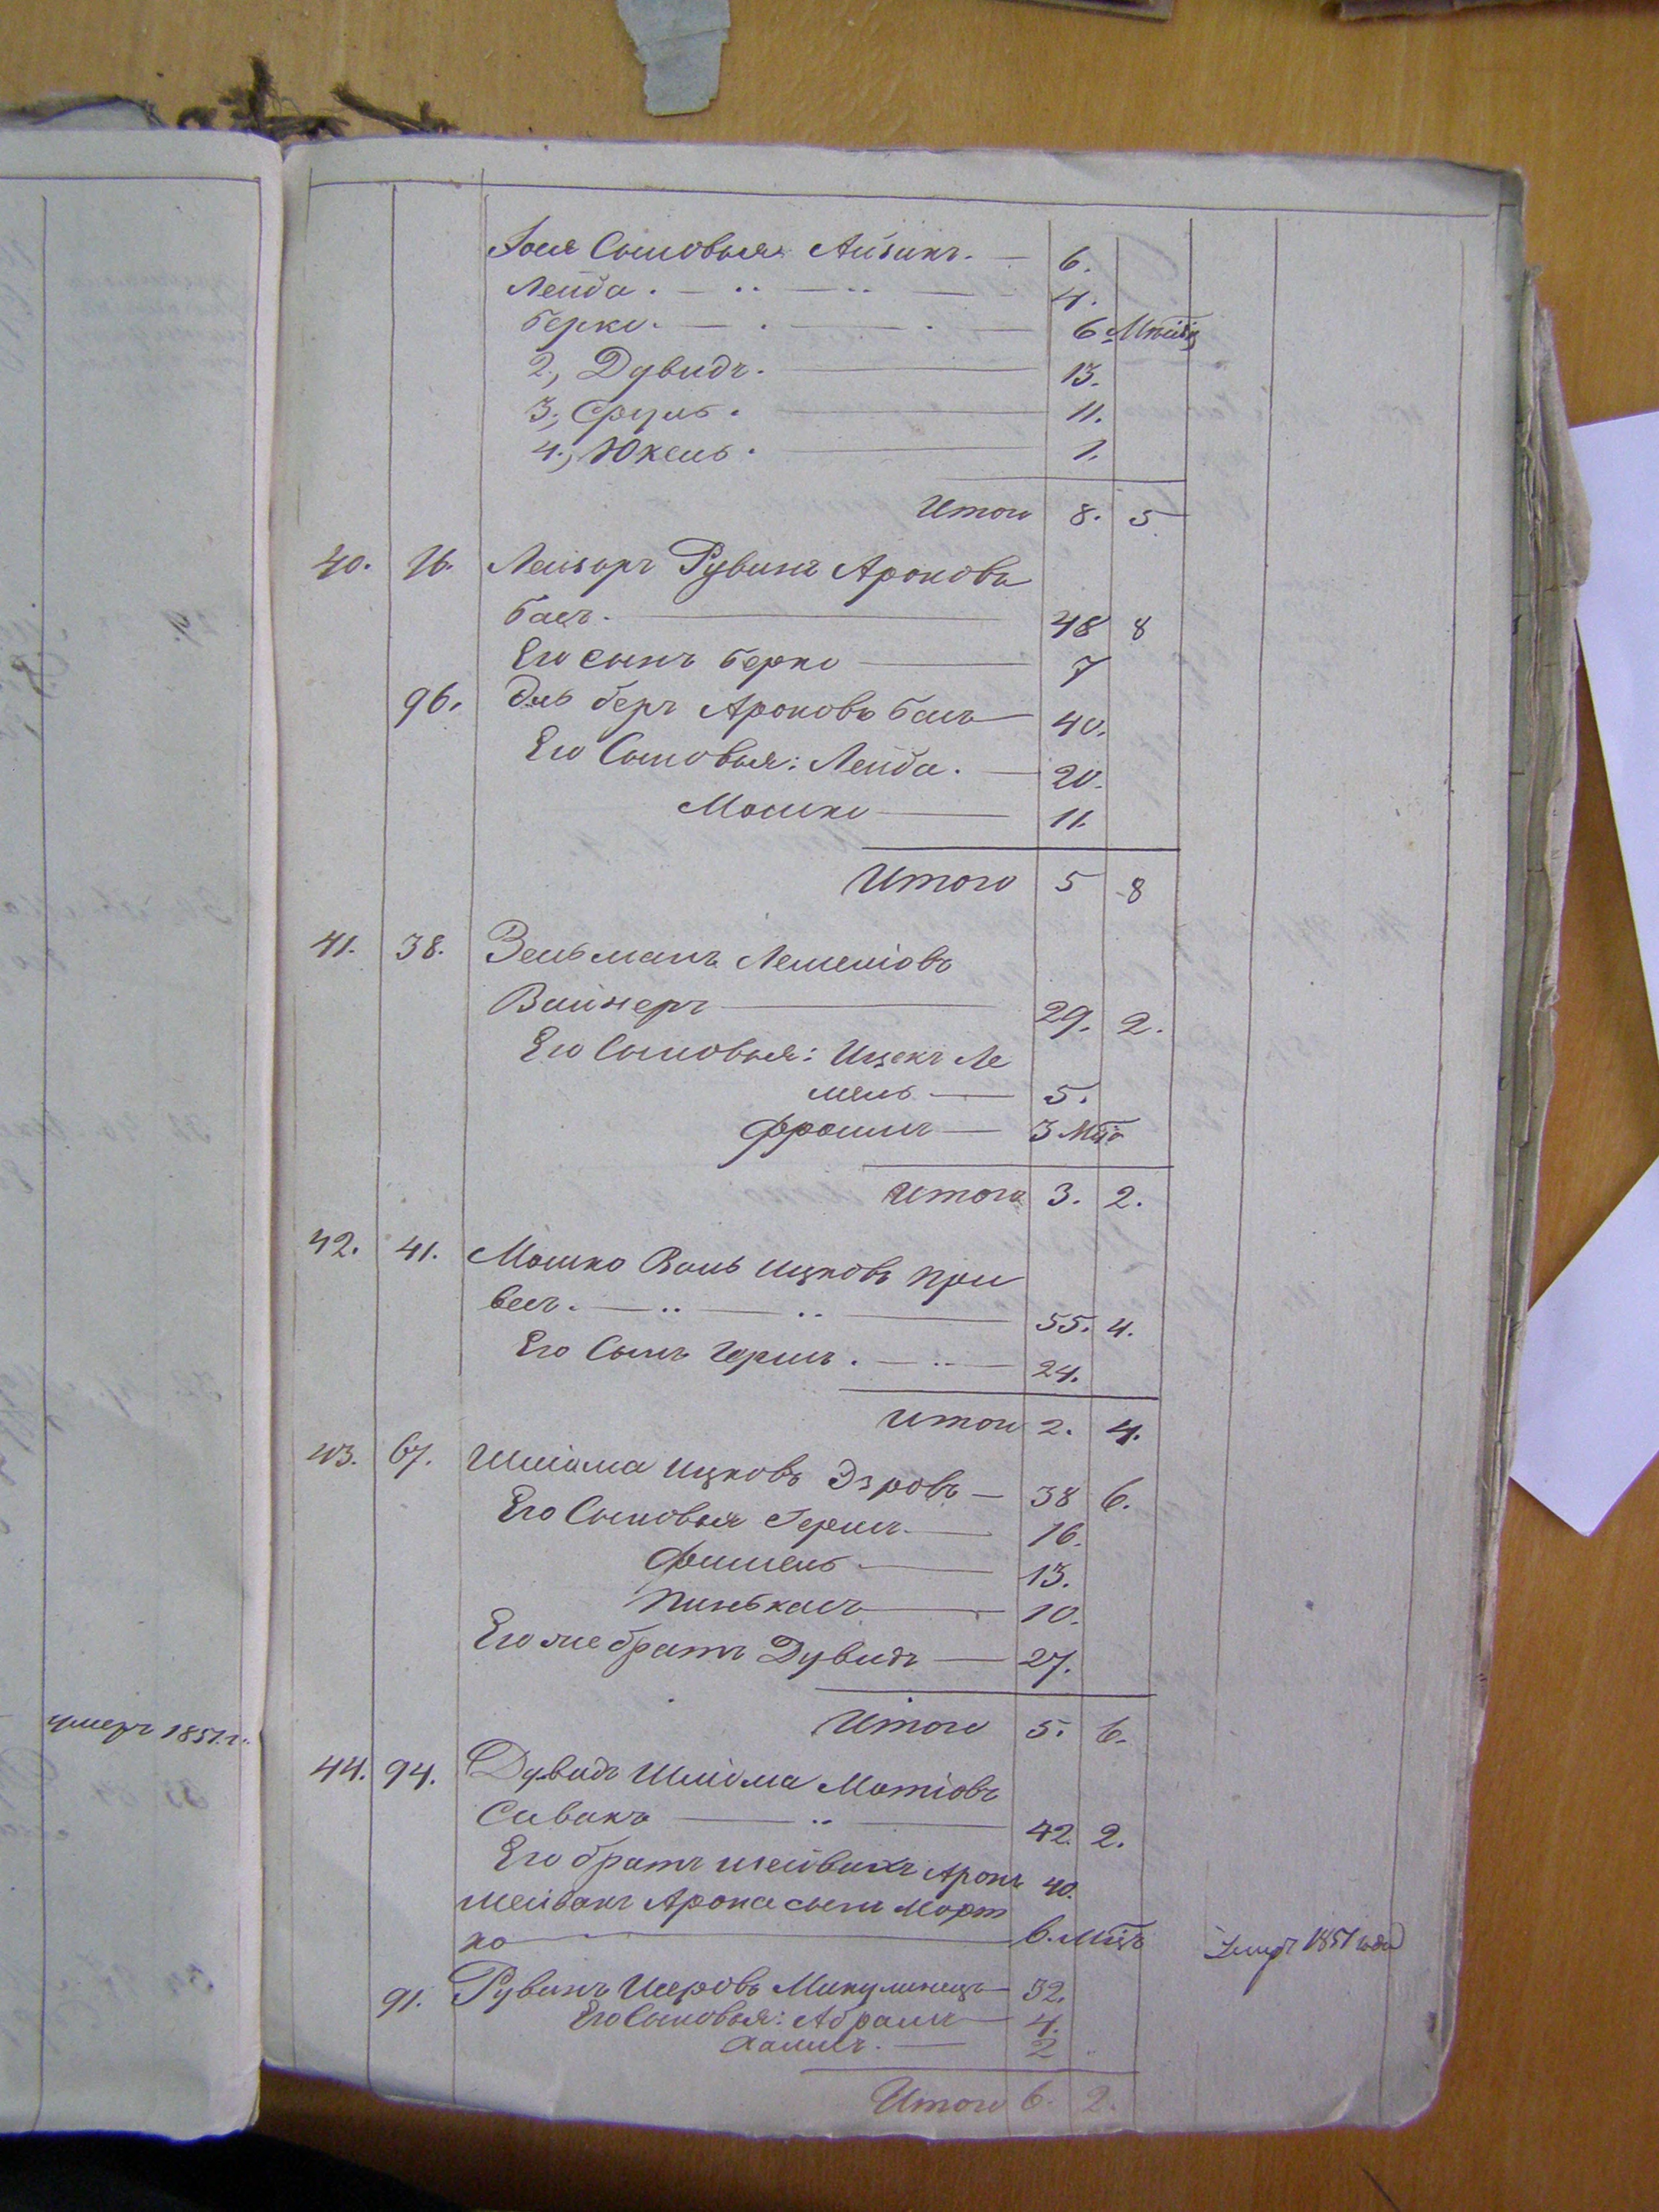 Іося Сыновья: Айзикъ. — 6.
Лейба. — 4.
Берко. — 6 Мѣсяц
2, Дувидъ. — 13.
3, Сруль. — 11.
4, Юкель. — 1.
Итого 8. 5
40. 76. Лейзоръ Рувинъ Ароновъ
Басъ. — 48 8
Его сынъ Берко — 7
96. Эль Беръ Ароновъ Басъ — 40.
Его Сыновья: Лейба. — 20.
Мошко — 11.
Итого 5 8
41. 38. Зельманъ Лемеліовъ
Вайнеръ — 29. 2.
Его Сыновья: Ицекъ Ле
мель — 5.
Фроимъ — 3 Мѣс
Итого 3. 2.
42. 41. Мошко Ицковъ При
весъ. — 55. 4.
Его Сынъ Гершъ. — 24.
Итого 2. 4.
43. 67. Шліома Ицковъ — 38 6.
Его Сыновья Гершъ. — 16.
Фишель — 13.
Пинькасъ — 10.
Его же братъ Дувидъ — 27.
Итого 5. 6.
умеръ 1851 г.
44. 94. Дувидъ Шліома Мотіовъ
Сивакъ — 42. 2.
Его братъ Аронъ 40.
Арона сынъ Морт
ко — 6. Мѣсц 1851 года
91. Рувинъ Микулинецъ — 32.
Его Сыновья: Абрамъ — 4.
Хаимъ. — 2
Итого 6. 2.